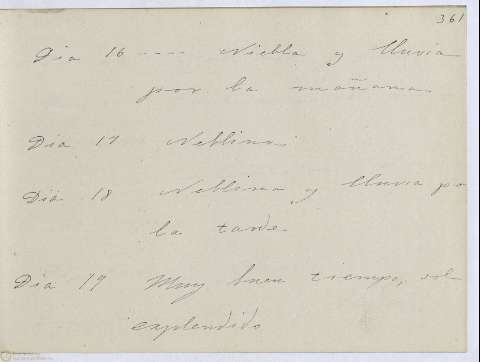 361
Dia 16 ---- Niebla y lluvia
por la mañana.
Dia 17 Neblina
Dia 18 Neblina y lluvia po
la tarde.
Dia 19 Muy buen tiempo, sol
explendido